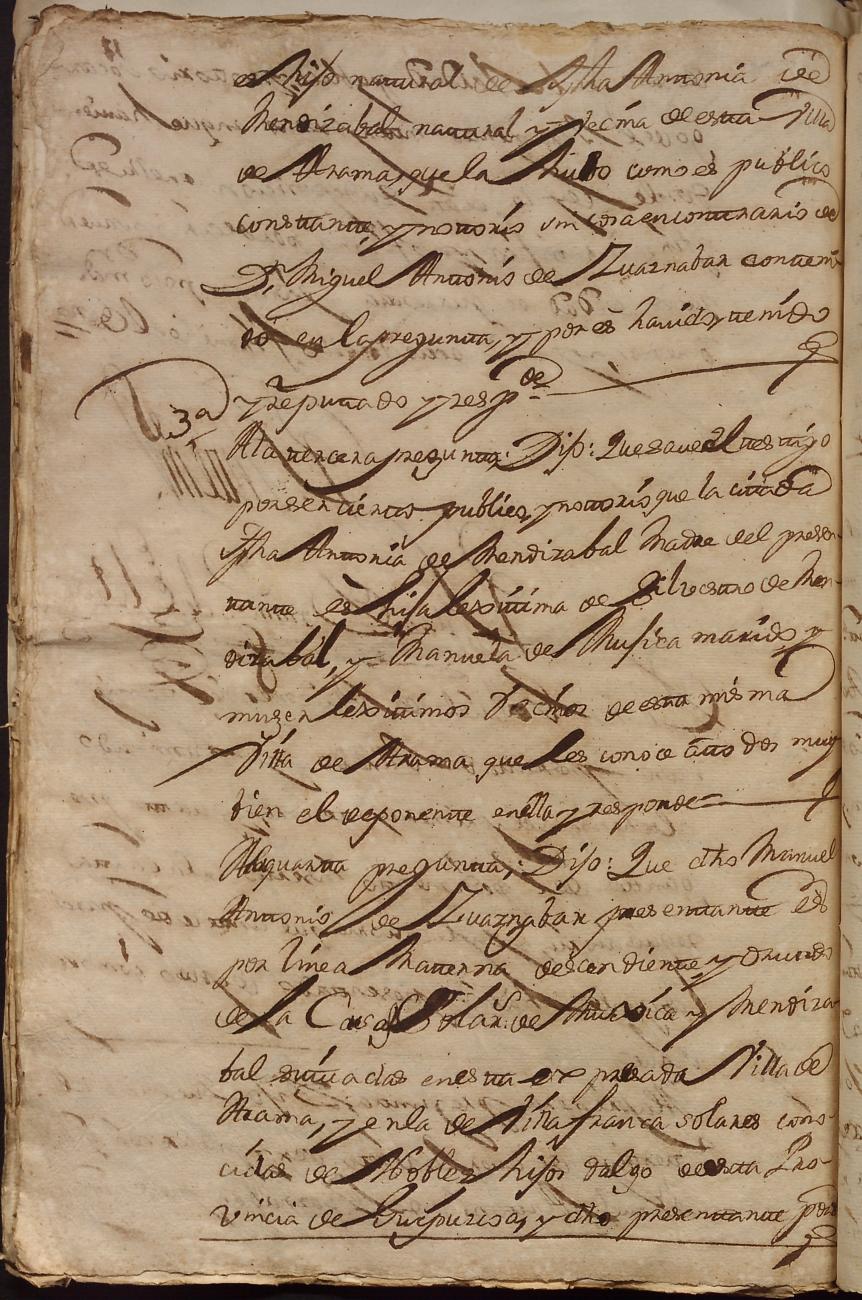 es hijo natural de dha Antonia de
Mendizabal natural y vecina de esta Villa
de Arama, que la hubo como es publico
constante, y notorio sin cosa en contrario de
Dn. Miguel Antonio de Zuaznabar conteni
do en la pregunta, y por es havido, y tenido
y reputado y respde
3a
A la tercera pregunta: Dijo: Que save el testigo
por ser cierto publico, y notorio que la citada
dha Antonia de Mendizabal Madre del presen
tante es hija lexitima de Silvestro de Men
dizabal, y Manuela de Muxica marido, y
muger lexitimos Vecinos de esta misma
Villa de Arama que les conoce a los dos muy
bien el deponente en ella y responde
A la quarta pregunta,: Dijo: Que dho Manuel
Antonio de Zuaznabar presentante es
por linea Materna descendiente y oriundo
de la Casa Solar de Muxica y Mendiza
bal situadas en esta expresada Villa de
Arama, y en la de Villafranca solares cono-
cidas de Nobles hijos dalgo de esta Pro-
vincia de Guipuzcoa, y dho presentante por